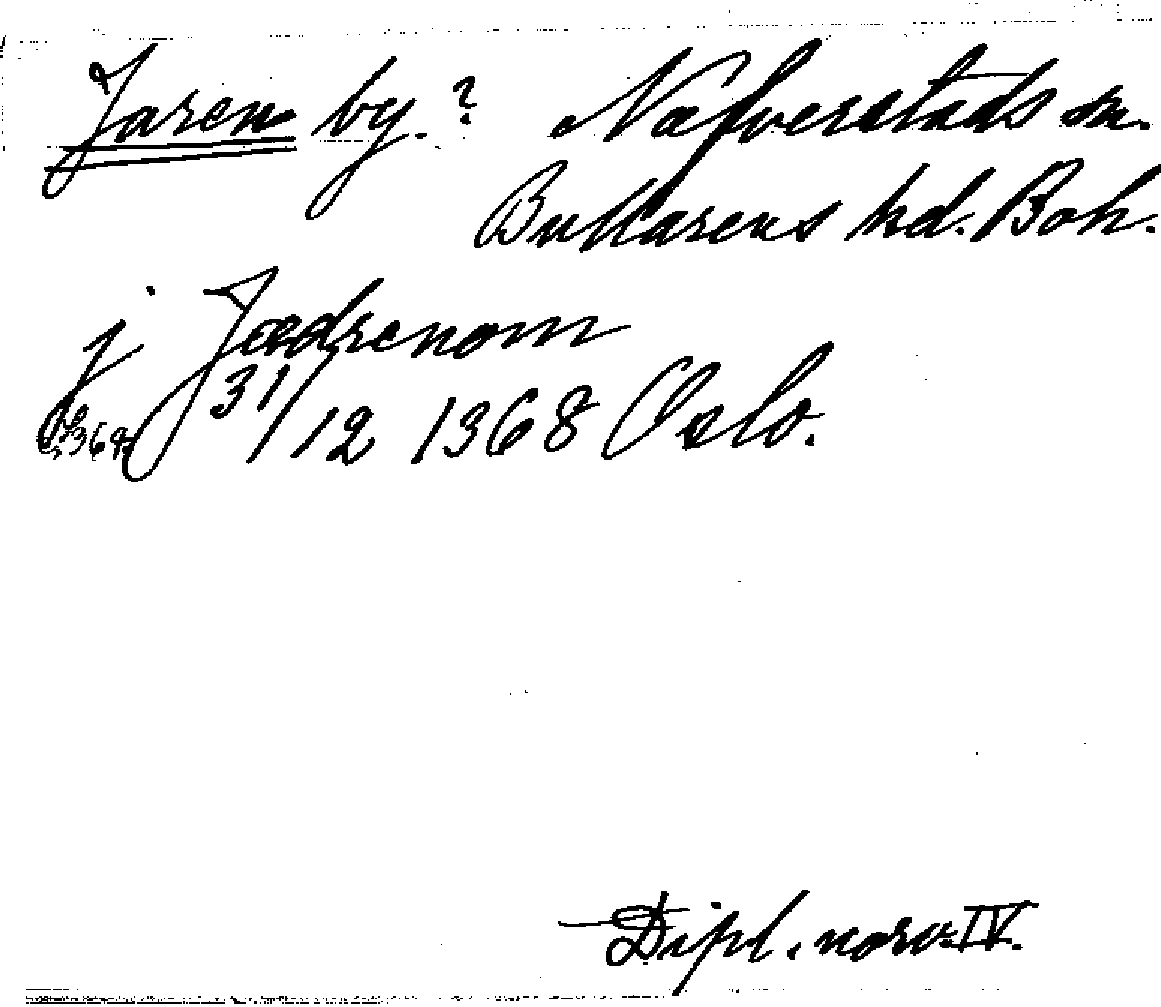 Jaren by.? Næfverstads sn.
Bullarens hd. Boh.
j Jædrenom
31/12 1368 Oslo.
Dipl. norv. IV.